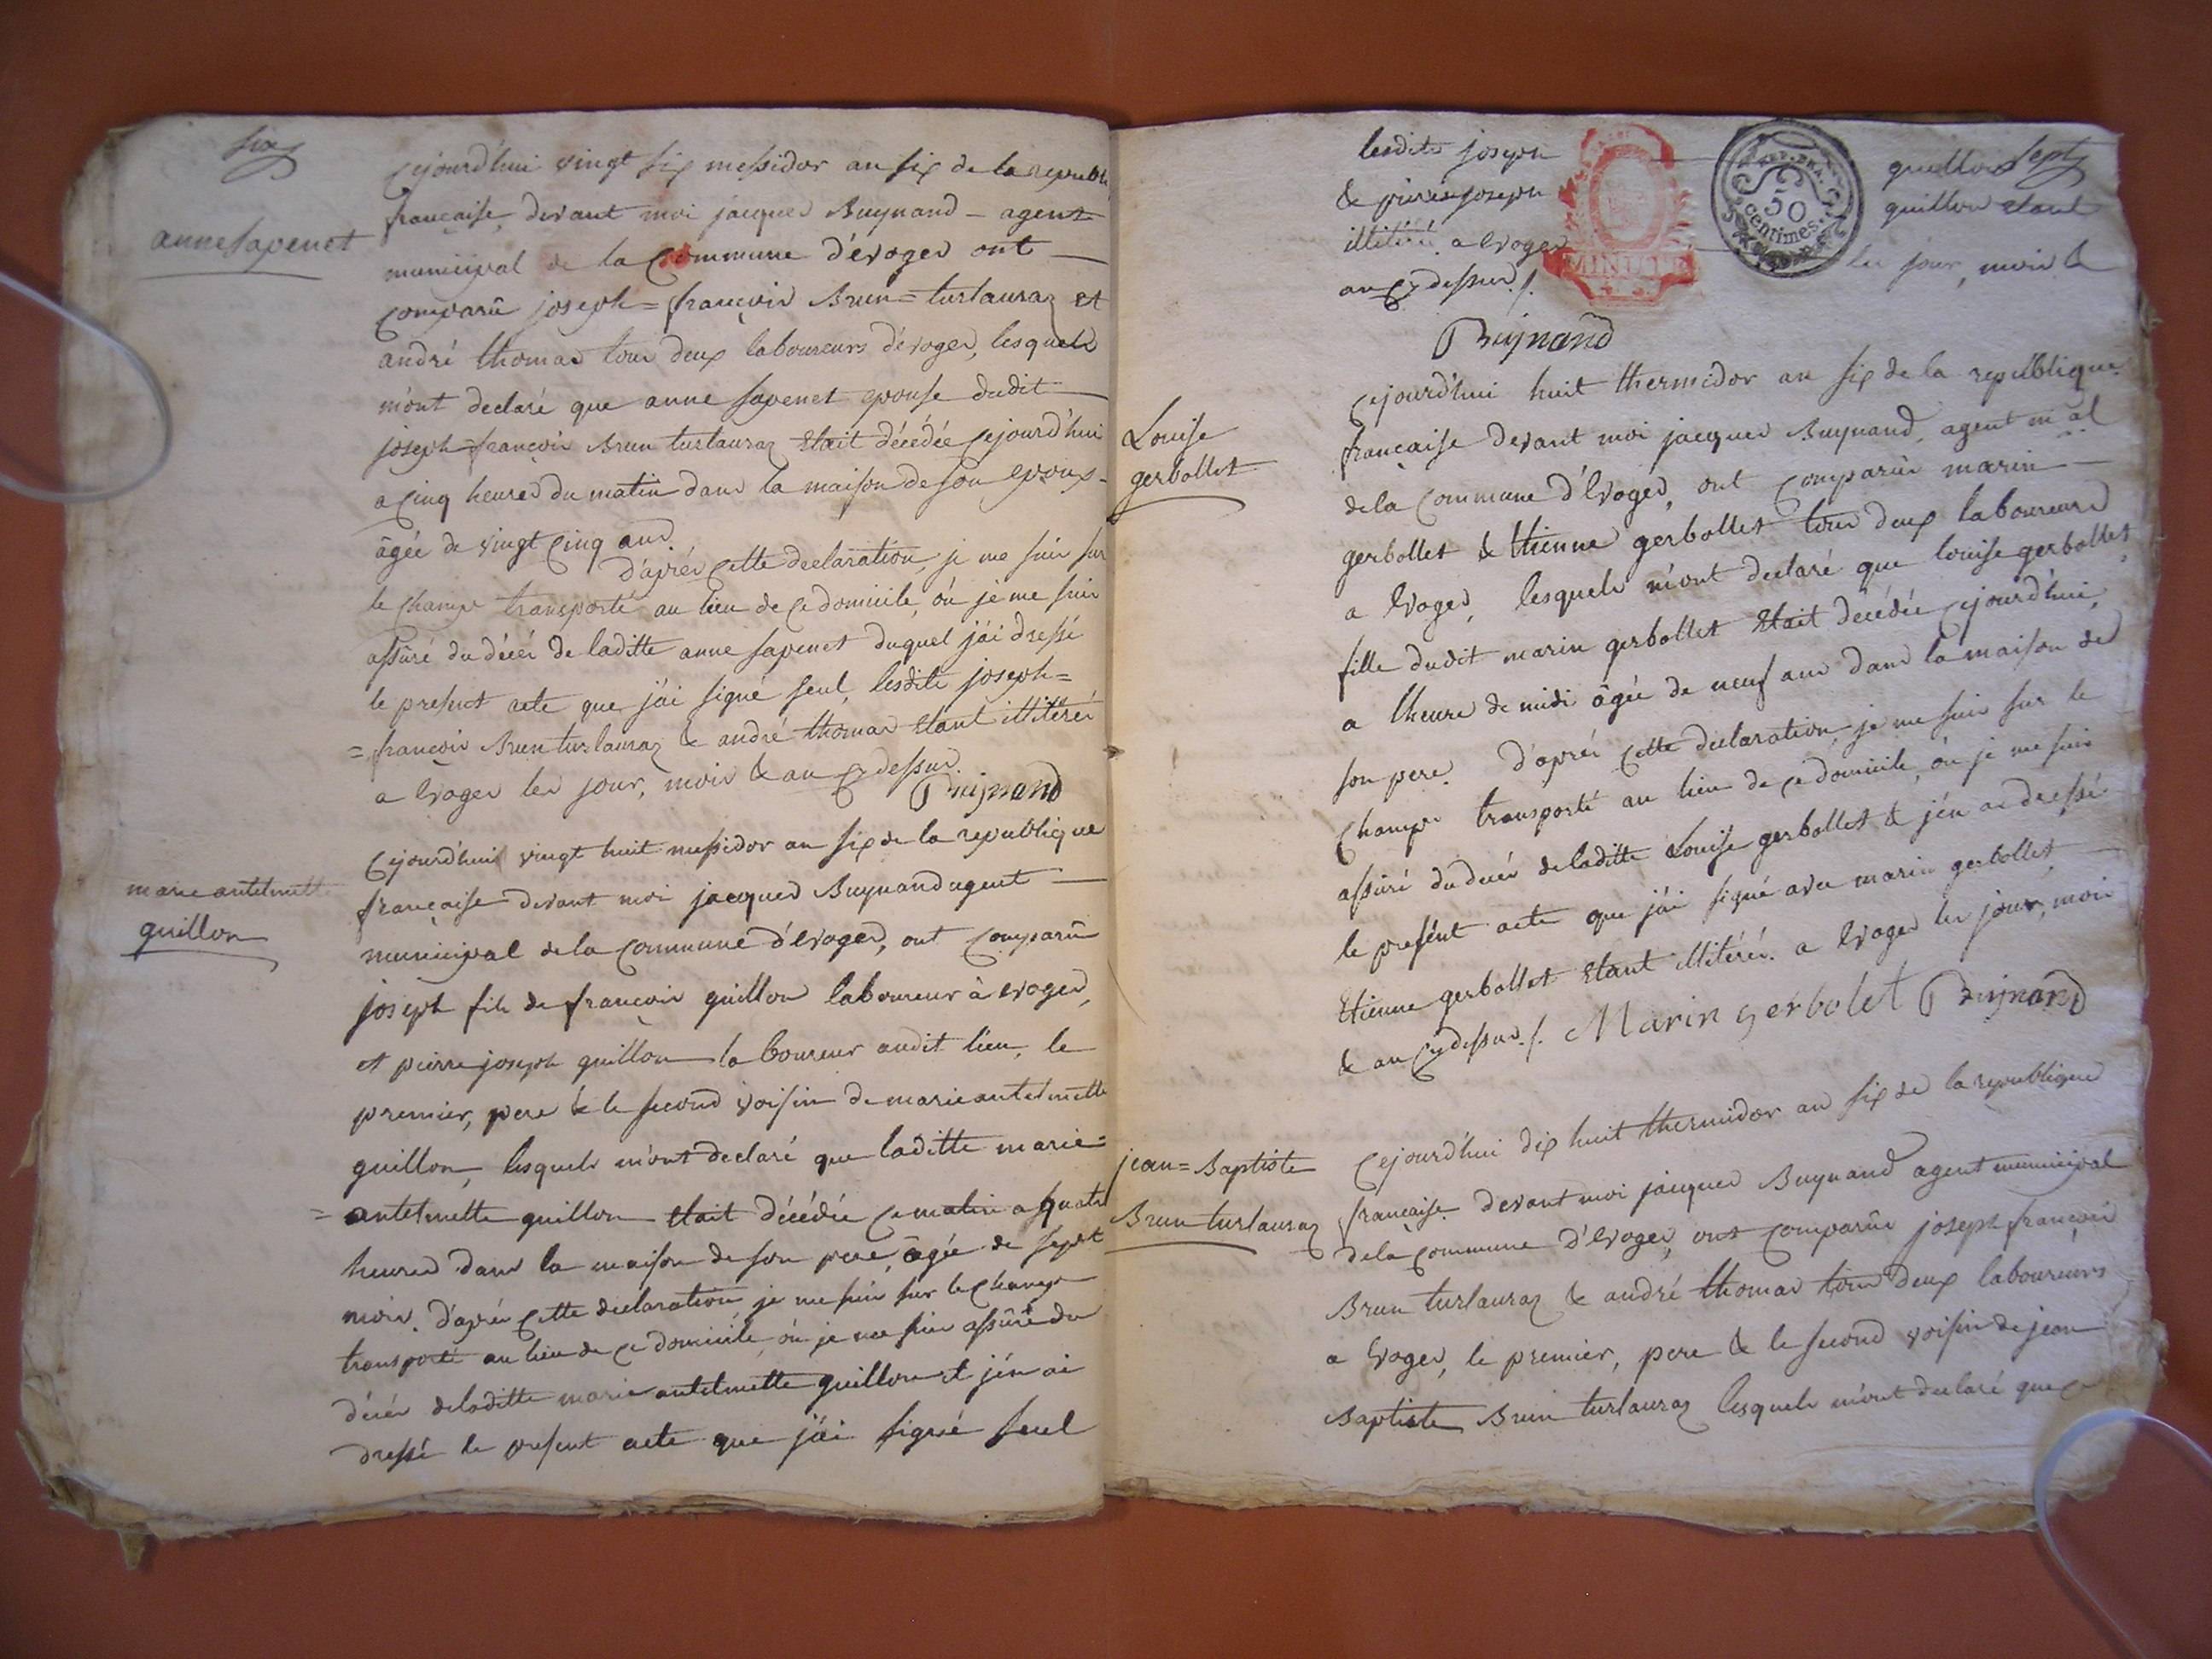 six
anne sapenet
Cejourd'hui vingt six messidor an six de la republi
française, devant moi jacques Buynand - agent
municipal de la Commune d'évoges ont
comparû joseph = françois Brun = turlauraz et
andré thomas tous deux laboureurs d'évoges, lesquels
m'ont declaré que anne sapenet epouse dudit
joseph = françois Brun turlauraz était décedée cejourd'hui
a cinq heures du matin dans la maison de son epoux -
âgée de vingt cinq ans.
d'aprés cette declaration, je me suis sur
le champ transporté au lieu de ce domicile, où je me suis
assûré du décés de laditte anne sapenet duquel j'ai dressé
le present acte que j'ai signé seul, lesdits joseph =
= françois Brun turlauraz & andré thomas étant illitérés
a Evoges les jour, mois & an cy dessus.
Buijnand
marie antelmett
guillon
Cejourd'hui vingt huit messidor an six de la republique
française devant moi jacques Buynand agent
municipal de la commune d'évoges, ont comparû
joseph fils de françois guillon laboureur à evoges,
et pierre joseph guillon laboureur audit lieu, le
premier, pere & le second voisin de marie antelmette
guillon, lesquels m'ont declaré que laditte marie =
= antelmette guillon était décédée ce matin a quatre
heures dans la maison de son pere, âgée de sept
mois. d'aprés cette declaration je me suis sur le champ
transporté au lieu de ce domicile, où je me suis assûré du
décés de laditte marie antelmette guillon et j'en ai
dressé le present acte que j'ai signé seul
lesdits joseph guillon sept
& pierre joseph guillon étant
illitérés a evoges les jour, mois &
an cy dessus ./.
REP. FRA.
50
centimes.
MINUTE
Buijnand
Louise
gerbollet
Cejourd'hui huit thermidor an six de la republique
française devant moi jacques Buynand, agent m al
de la commune d'Evoges, ont comparûs marin
gerbollet & Etienne gerbollet tous deux laboureurs
a Evoges, lesquels m'ont declaré que louise gerbollet,
fille dudit marin gerbollet était decédée cejourd'hui,
a l'heure de midi âgée de neuf ans dans la maison de
son pere. d'aprés cette declaration, je me suis sur le
champ transporté au lieu de ce domicile, où je me suis
assûré du decés de laditte Louise gerbollet & j'en ai dressé
le present acte que j'ai signé avec marin gerbollet,
Etienne gerbollet étant illitéré. a Evoges les jour, mois
& an cy dessus ./. Marin gerbolet Buijnand
jean = Baptiste
Brun turlauraz
Cejourd'hui dix huit thermidor an six de la republique
française devant moi jacques Buynand agent municipal
de la commune d'Evoges, ont comparûs joseph françois
Brun turlauraz & andré thomas tous deux laboureurs
a Evoges, le premier, pere & le second voisin de jean
Baptiste Brun turlauraz lesquels m'ont declaré que ce